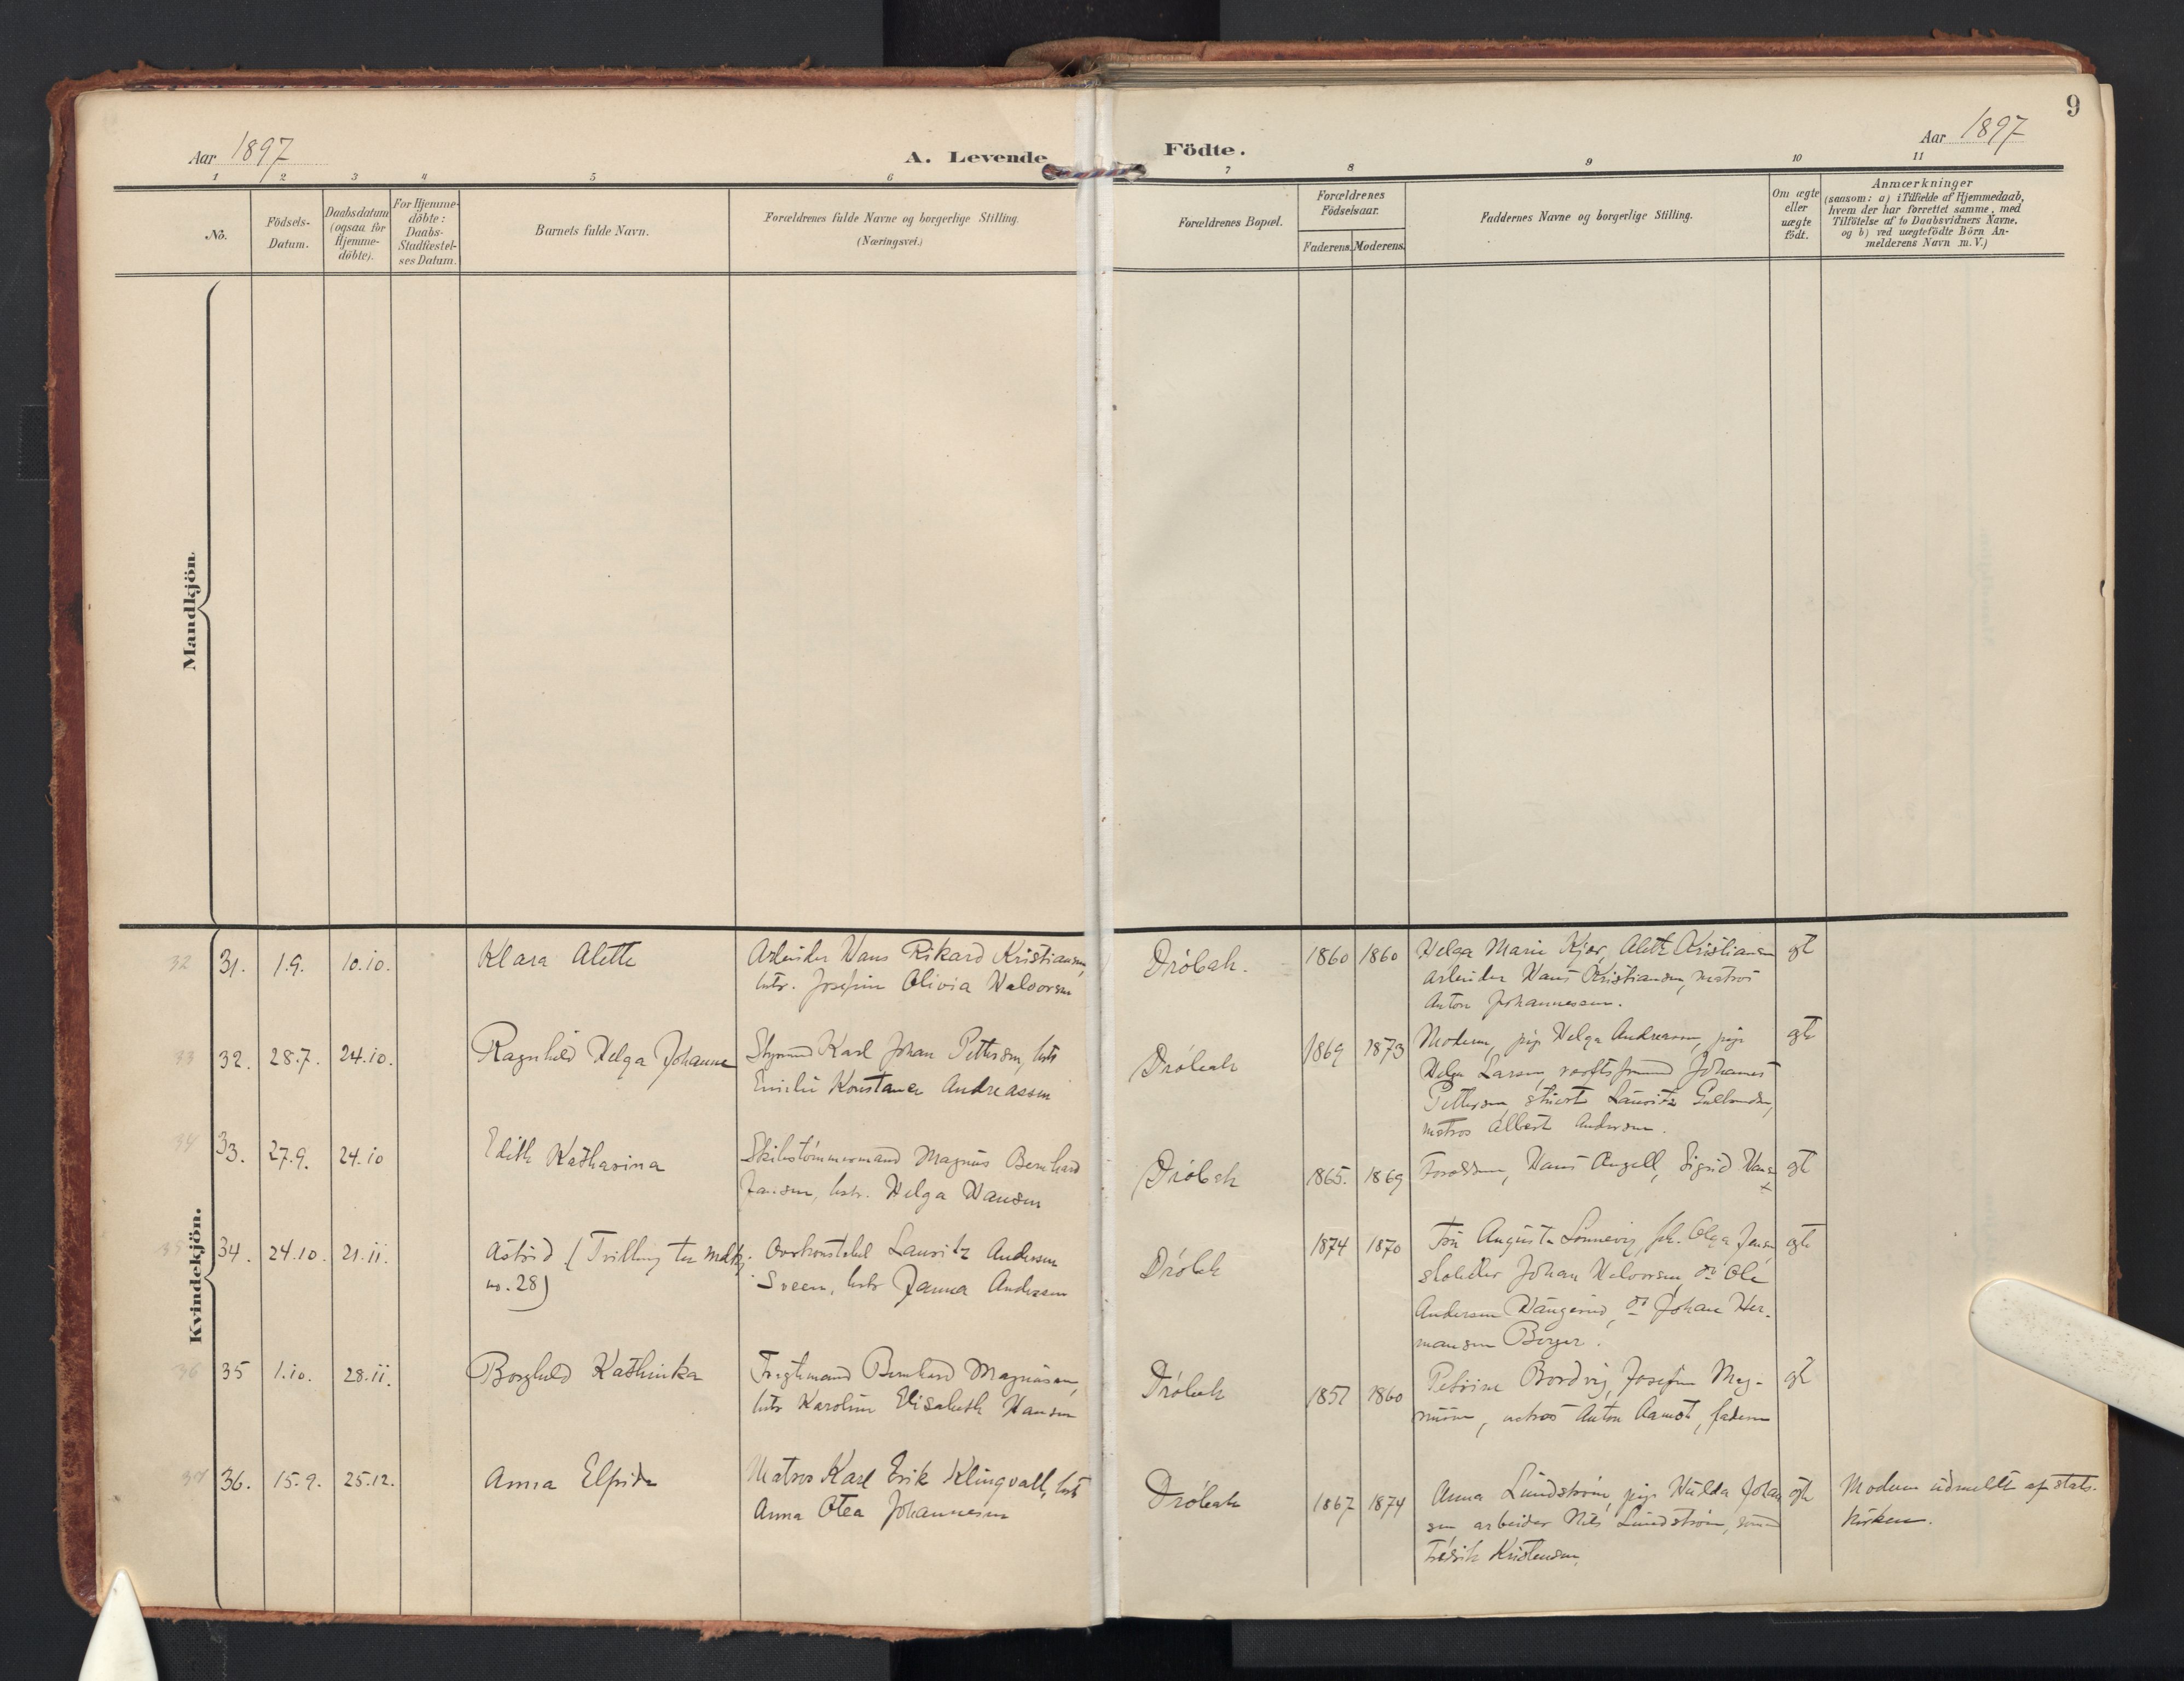 9
Aar 1897
A. Levende
Födte.
Aar 1897
1 2 3 4 5 6 7 8 9 10 11
No.
Födsels-
Datum.
Daabsdatum
(ogsaa for
Hjemme-
döbte).
For Hjemme-
döbte:
Daabs-
Stadfæstel-
ses Datum.
Barnets fulde Navn.
Forældrenes fulde Navne og borgerlige Stilling.
(Næringsvei.)
Forældrenes Bopæl.
Forældrenes
Födselsaar.
Faderens. Moderens.
Faddernes Navne og borgerlige Stilling.
Om ægte
eller
uægte
födt.
Anmærkninger
(saasom: a) i Tilfælde af Hjemmedaab,
hvem der har forrettet samme, med
Tilföielse af to Daabsvidners Navne.
og b) ved uægtefödte Börn An-
melderens Navn m.V.)
Mandkjön.
Kvindekjön.
32 31. 1.9. 10.10. Klara Alette
Arbeider Hans Rikard Kristiansen,
hstr. Josefine Olivia Halvorsen
Dröbak. 1860 1860
Helga Marie Kjær, Alette Kristiansen
arbeider Hans Kristiansen, matros
Anton Johannessen.
gt
33 32. 28.7. 24.10. Ragnhild Helga Johanne
Styrmand Karl Johan Pettersen, hstr
Emilie Konstance Andreassen
Dröbak 1869 1873
Moderen, pige Helga Andreassen, pige
Helga Larsen, værftsformand Johannes
Pettersen, stuert Lauritz Gulbrandsen,
matros Albert Andersen.
gt
34 33. 27.9. 24.10 Edith Katharina
Skibstömmermand Magnus Bernhard
Jansen, hstr. Helga Hansen
Dröbak 1865. 1869
Forældrene, Hans Angell, Sigrid Hansen
gt
35 34. 24.10. 21.11. Astrid (Tvilling til mdkj.
no. 28)
Overkonstabel Lauritz Andersen
Sveen, hstr Janna Andersen
Dröbk 1874 1870
Fru Augusta Sonnevig, frk. Olga Jensen
Johan Halvorsen, do Ole
Andersen Vangerud, do Johan Her-
mansen Berger.
gt
36 35 1.10. 28.11. Borghild Kathinka
Fragtemand Bernhard Magnusen,
hstr Karoline Elisabeth Hansen
Dröbak 1857 1860
Petrine Bordvig, Josefine Mag-
nusen, matros Anton Aamot, faderen
gt
37 36. 15.9. 25.12. Anna Elfrida
Matros Karl Erik Klingvall, hstr
Anna Otea Johannesen
Dröbak 1867 1874
Anna Lundström, pige Hulda Johan
sen arbeider Nils Lundström, sömand
Fredrik Kristensen.
gt
Moderen udmeldt af stats-
kirken.